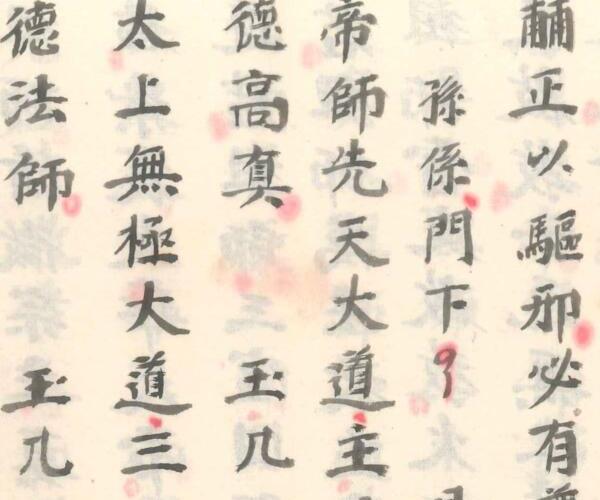 輔正以驅邪必有
孫係門下
帝師先天大道主
德高真 玉几
太上無極大道三
德法師 玉几